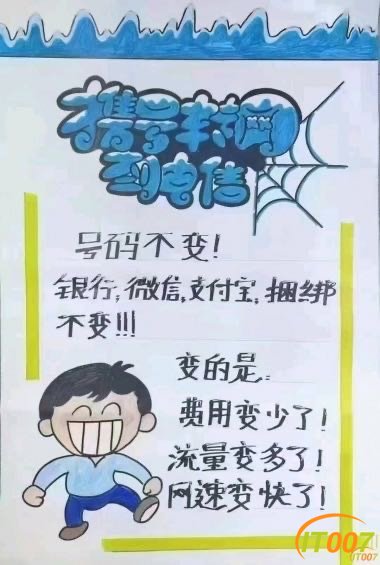 携号转网
到电信
号码不变！
银行，微信，支付宝，捆绑
不变!!!
变的是：
费用变少了！
流量变多了！
网速变快了！
IT007
IT007